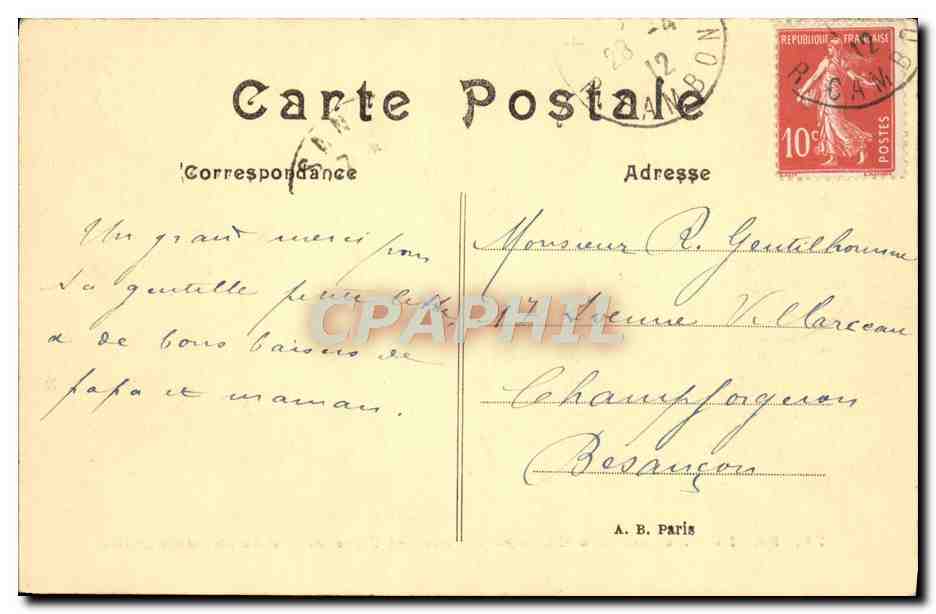 Carte Postale
Correspondance
Adresse
RÉPUBLIQUE FRANÇAISE
10c
POSTES
28 -4
12
R. CAMBON
12
R. CAMBO
Un grand merci pour
sa gentille petite lettre
& de bons baisers de
papa et maman.
Monsieur R. Gentilhomme
17 Avenue Villarceau
Champforgeron
Besançon
A. B. Paris
CPAPHIL